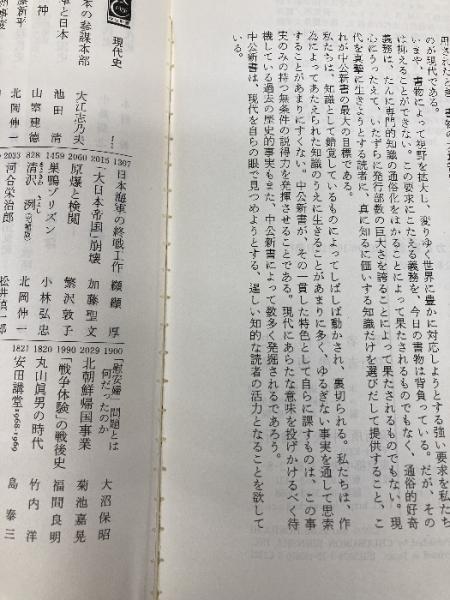 のが現代である。
いまや、書物によって視野を拡大し、変りゆく世界に豊かに対応しようとする強い要求を私たち
は抑えることができない。この要求にこたえる義務を、今日の書物は背負っている。だが、その
義務は、たんに専門的知識の通俗化をはかることによって果たされるものでもなく、通俗的好奇
心にうったえて、いたずらに発行部数の巨大さを誇ることによって果たされるものでもない。現
代を真摯に生きようとする読者に、真に知るに価いする知識だけを選びだして提供すること、こ
れが中公新書の最大の目標である。
私たちは、知識として錯覚しているものによってしばしば動かされ、裏切られる。私たちは、作
為によってあたえられた知識のうえに生きることがあまりに多く、ゆるぎない事実を通して思索
することがあまりにすくない。中公新書が、その一貫した特色として自らに課すものは、この事
実のみの持つ無条件の説得力を発揮させることである。現代にあらたな意味を投げかけるべく待
機している過去の歴史的事実もまた、中公新書によって数多く発掘されるであろう。
中公新書は、現代を自らの眼で見つめようとする、逞しい知的な読者の活力となることを欲して
いる。
現代史
本の参謀本部 大江志乃夫
と日本 池田 清
神 山室建德
北岡伸一
1307 日本海軍の終戦工作 纐纈 厚
2015 「大日本帝国」崩壊 加藤聖文
2060 原爆と検閲 繁沢敦子
1459 巣鴨プリズン 小林弘忠
828 清沢 洌(増補版) 北岡伸一
2033 河合栄治郎 松井慎一郎
1900 「慰安婦」問題とは何だったのか 大沼保昭
2029 北朝鮮帰国事業 菊池嘉晃
1990 「戦争体験」の戦後史 福間良明
1820 丸山眞男の時代 竹内 洋
1821 安田講堂1968-1969 島 泰三